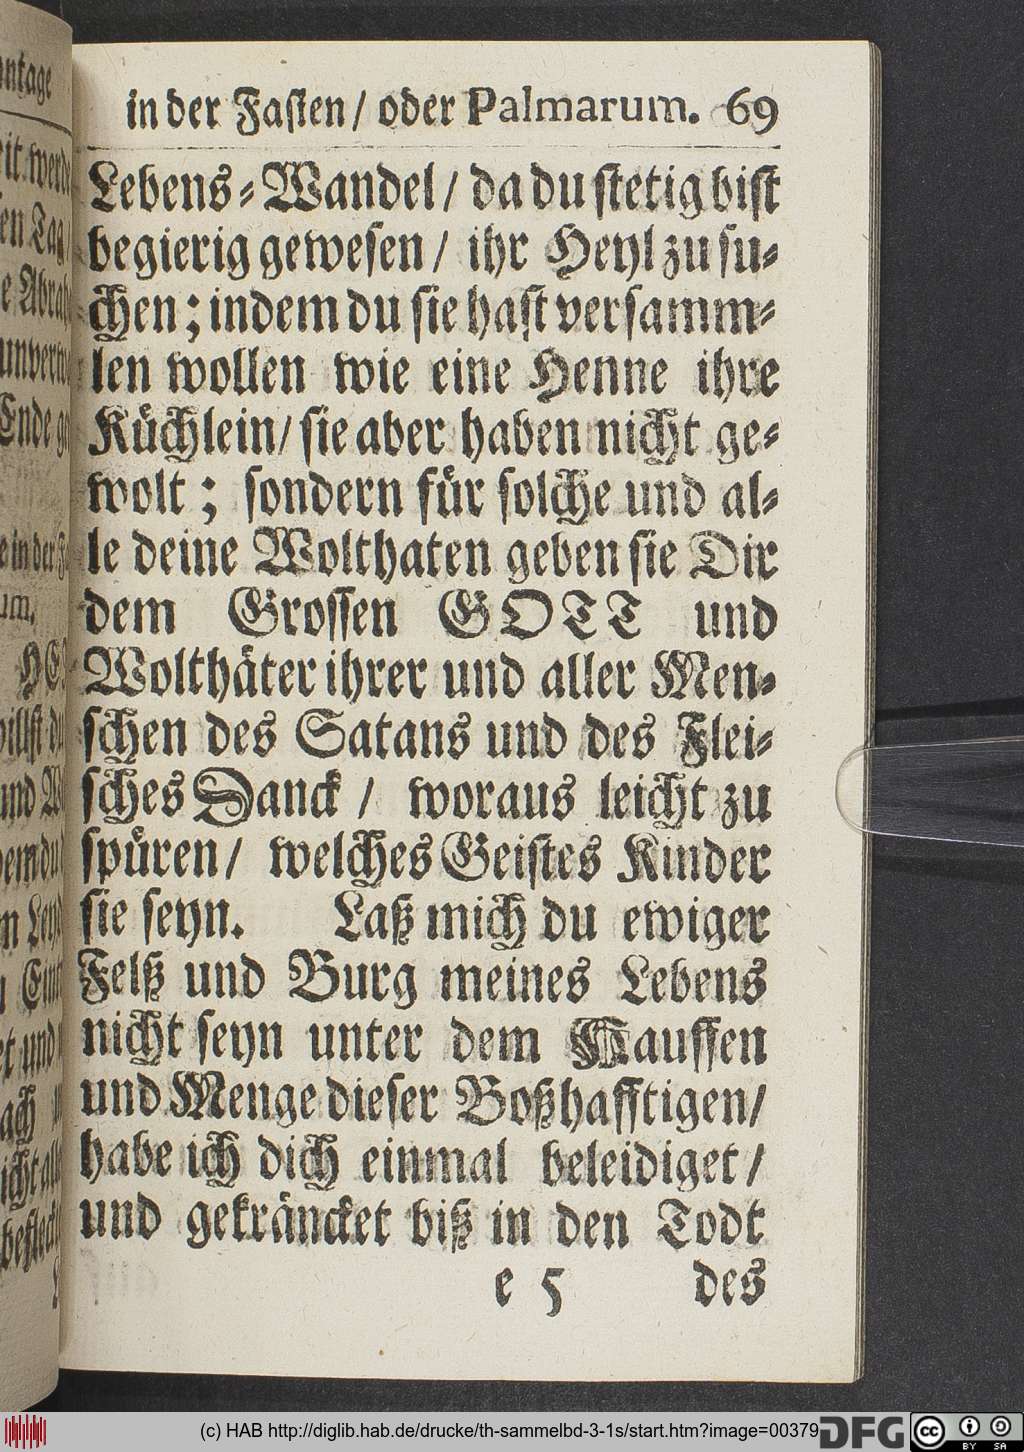 in der Fasten / oder Palmarum. 69
Lebens-Wandel / da du stetig bist
begierig gewesen / ihr Heyl zu su-
chen; indem du sie hast versamm-
len wollen wie eine Henne ihre
Küchlein / sie aber haben nicht ge-
wolt; sondern für solche und al-
le deine Wolthaten geben sie Dir
dem Grossen GOTT und
Wolthäter ihrer und aller Men-
schen des Satans und des Flei-
sches Danck / woraus leicht zu
spüren / welches Geistes Kinder
sie seyn. Laß mich du ewiger
Felß und Burg meines Lebens
nicht seyn unter dem Hauffen
und Menge dieser Boßhafftigen /
habe ich dich einmal beleidiget /
und gekräncket biß in den Todt
e 5 des
(c) HAB http://diglib.hab.de/drucke/th-sammelbd-3-1s/start.htm?image=00379
DFG
cc BY SA